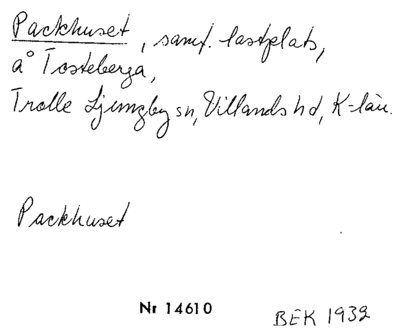 Packhuset, samf. lastplats,
å Tosteberga,
Trolle Ljungby sn, Villands hd, K-län.
Packhuset
Nr 14610
BEK 1932